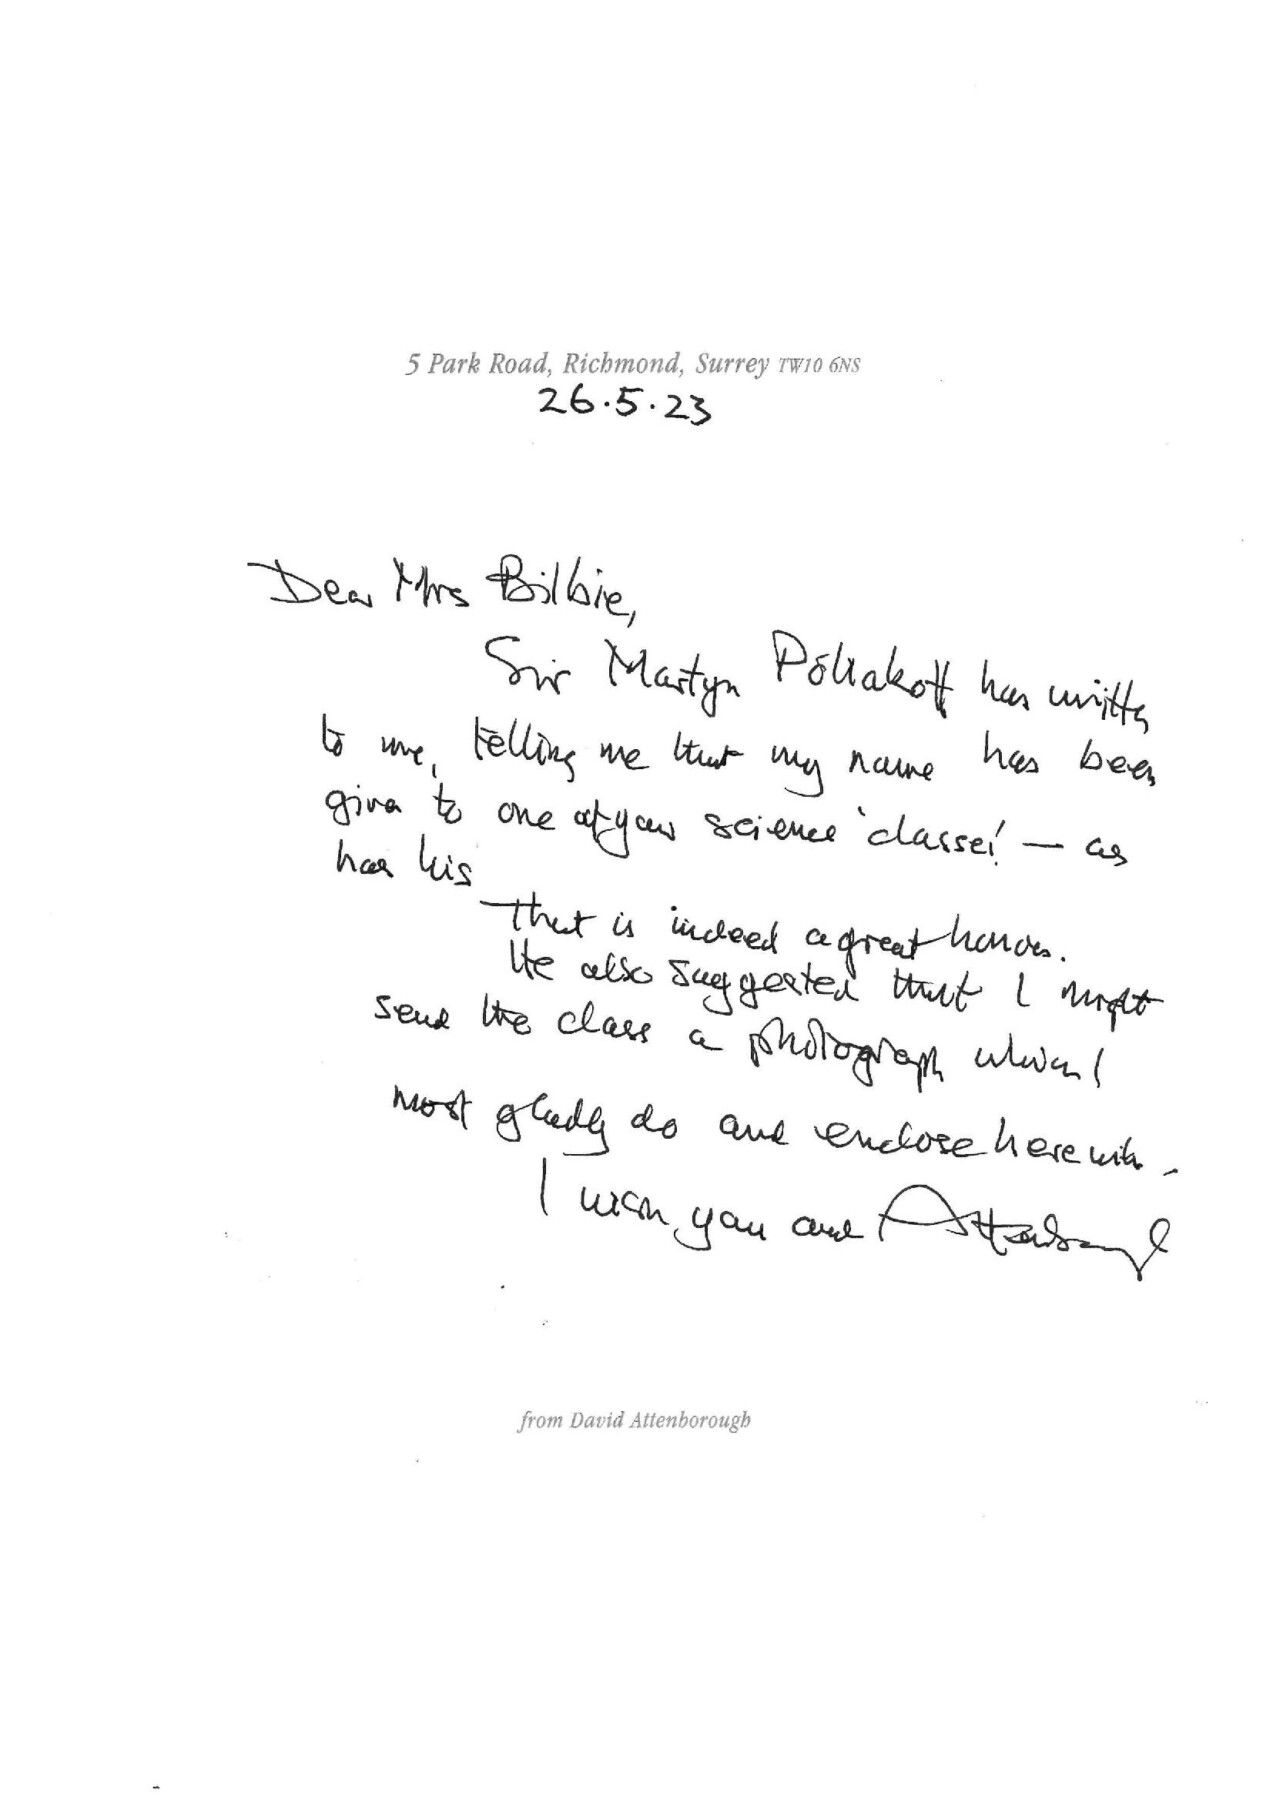 5 Park Road, Richmond, Surrey TW10 6NS
26.5.23
Dear Mrs Bilbie,
Sir Martyn Poliakoff has written
to me, telling me that my name has been
given to one of your science 'classes' — as
has his
That is indeed a great honour.
He also suggested that I might
send the class a photograph which I
most gladly do and enclose herewith.
I wish you and Attenborough
from David Attenborough